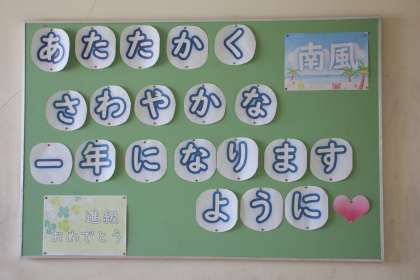 あたたかく
南風
さわやかな
一年になります
ように
進級
おめでとう